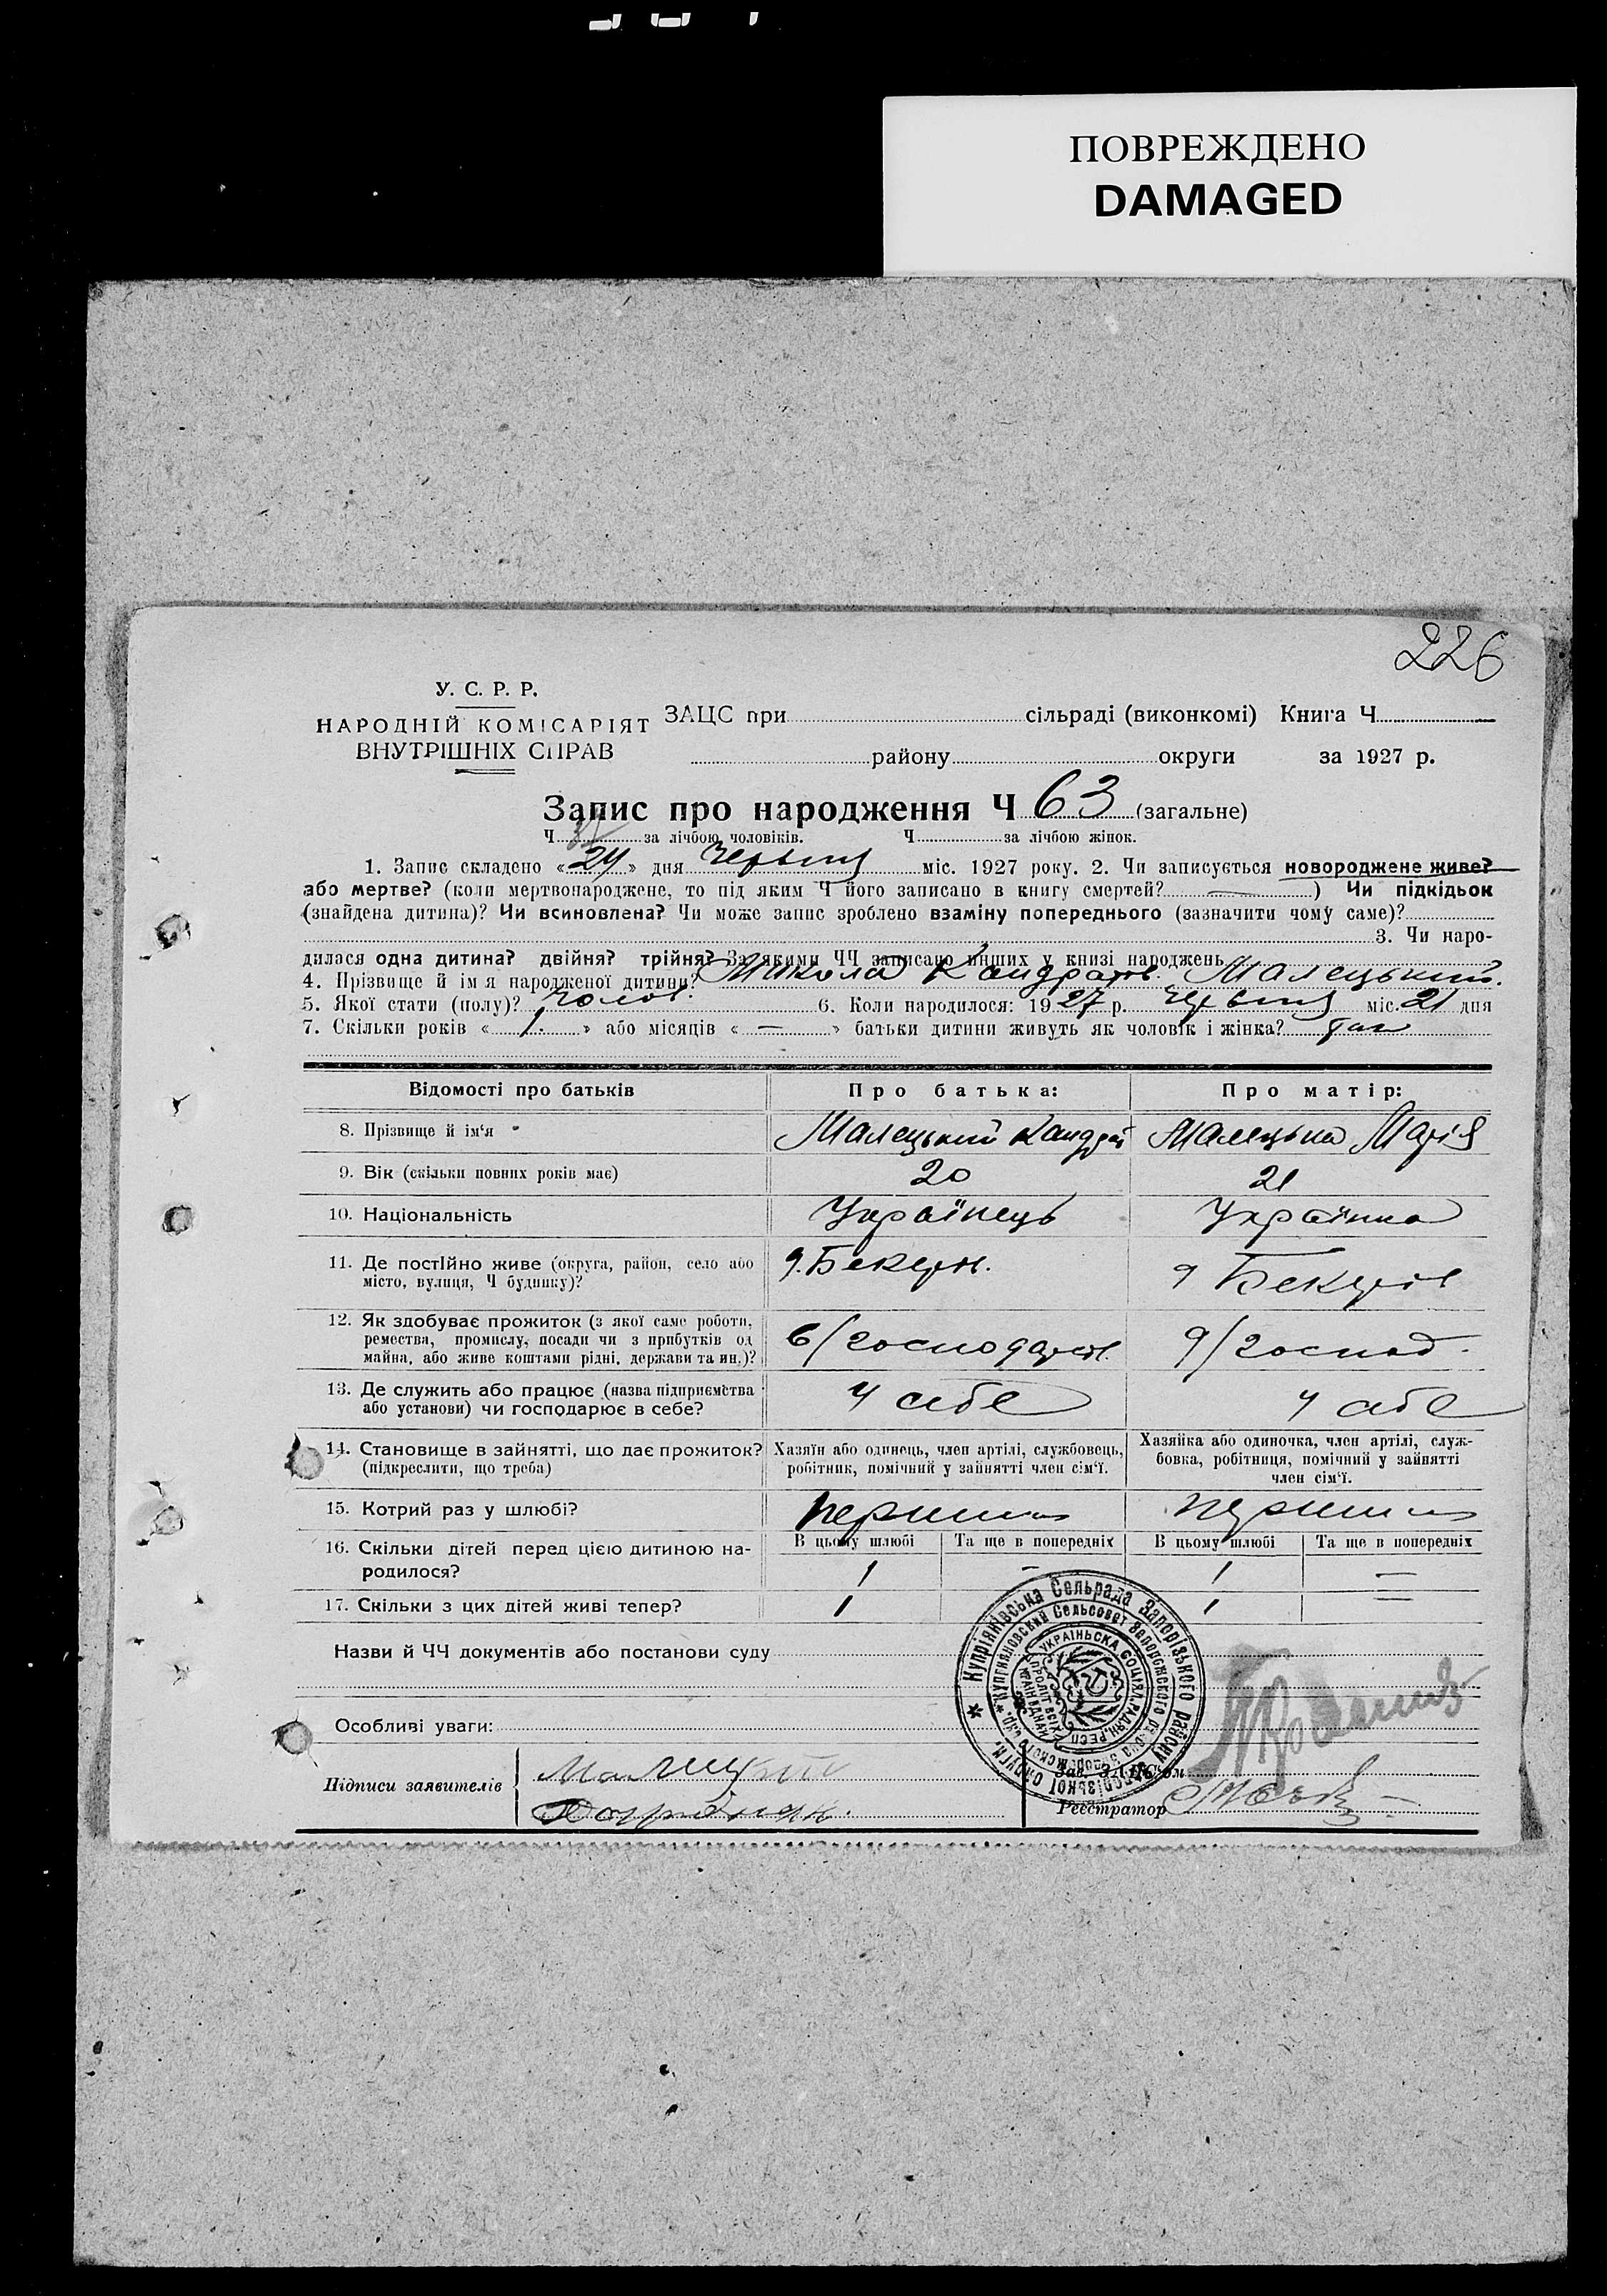 ПОВРЕЖДЕНО
DAMAGED
226
У. С. Р. Р.
НАРОДНІЙ КОМІСАРІЯТ
ВНУТРІШНІХ СПРАВ
ЗАЦС при сільраді (виконкомі) Книга Ч
району округи за 1927 р.
Запис про народження Ч 63 (загальне)
Ч за лічбою чоловіків. Ч за лічбою жінок.
1. Запис складено «24» дня Червня міс. 1927 року. 2. Чи записується новороджене живе?
або мертве? (коли мертвонароджене, то під яким Ч його записано в книгу смертей? — ) Чи підкідьок
(знайдена дитина)? Чи всиновлена? Чи може запис зроблено взаміну попереднього (зазначити чому саме)?
3. Чи наро-
дилася одна дитина? двійня? трійня? За якими ЧЧ записано инших у книзі народжень
4. Прізвище й ім'я народженої дитини? Микола Кандратів. Малецький.
5. Якої стати (полу)? Чолов. 6. Коли народилося: 1927 р. Червня міс. 21 дня
7. Скільки років « 1. » або місяців « — » батьки дитини живуть як чоловік і жінка? так
Відомості про батьків Про батька: Про матір:
8. Прізвище й ім'я Малецький Кандрат Малецька Марія
9. Вік (скільки повних років має) 20 21
10. Національність Українець Українка
11. Де постійно живе (округа, район, село або
місто, вулиця, Ч будинку)?
12. Як здобуває прожиток (з якої саме роботи,
ремества, промислу, посади чи з прибутків од
майна, або живе коштами рідні, держави та ин.)?
13. Де служить або працює (назва підприємства
або установи) чи господарює в себе? у себе у себе
14. Становище в зайнятті, що дає прожиток?
(підкреслити, що треба)
Хазяїн або одинець, член артілі, службовець,
робітник, помічний у зайнятті член сім'ї.
Хазяйка або одиночка, член артілі, служ-
бовка, робітниця, помічний у зайнятті
член сім'ї.
15. Котрий раз у шлюбі? перший перший
16. Скільки дітей перед цією дитиною на-
родилося?
В цьому шлюбі Та ще в попередніх В цьому шлюбі Та ще в попередніх
1 — 1 —
17. Скільки з цих дітей живі тепер? 1 1 —
Назви й ЧЧ документів або постанови суду
Особливі уваги:
Підписи заявителів
Малецкий
Зав. ЗАЦС'ом
Реєстратор
Купріянівська Сельрада Запорізького району Запорізької Округи.